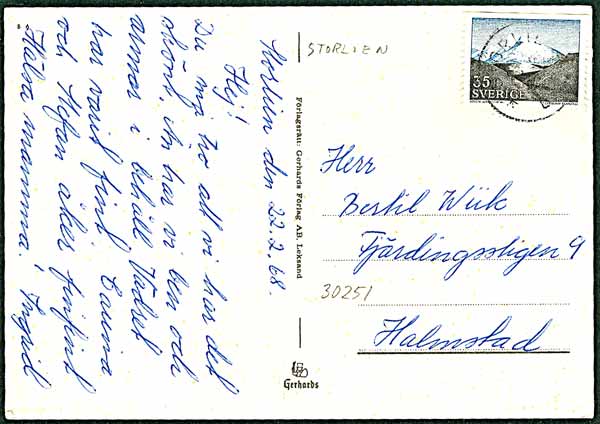 Storlien den 22.2.68.
Hej!
Du må tro att vi har det
skönt, än har vi ben och
armar i behåll. Vädret
har varit fint. Carina
och Stefan åker finfint
Hälsa mamma. Ingrid
Förlagsrätt: Gerhards Förlag AB, Leksand
STORLIEN
35
SVERIGE
Herr
Bertil Wiik
Fjärdingsstigen 9
30251
Halmstad
Gerhards